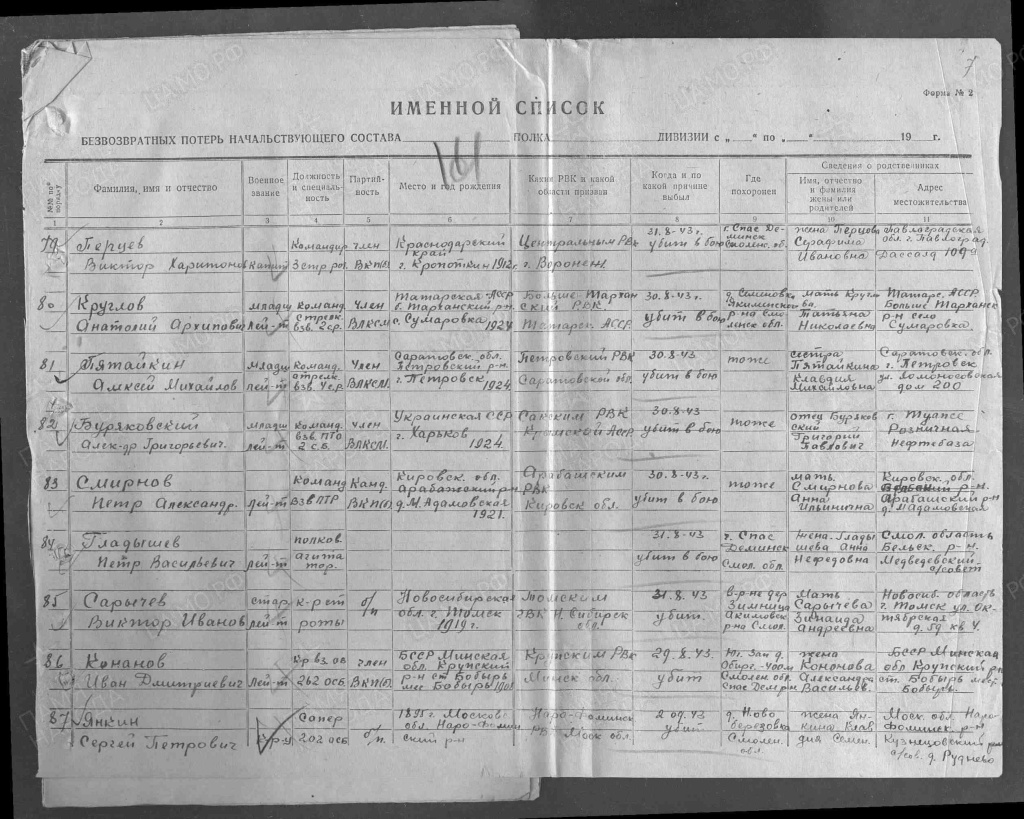 7
Форма № 2
ИМЕННОЙ СПИСОК
БЕЗВОЗВРАТНЫХ ПОТЕРЬ НАЧАЛЬСТВУЮЩЕГО СОСТАВА ПОЛКА ДИВИЗИИ с „ “ по „ “ 19 г.
№№ по порядку
Фамилия, имя и отчество
Военное звание
Должность и специальность
Партийность
Место и год рождения
Каким РВК и какой области призван
Когда и по какой причине выбыл
Где похоронен
Сведения о родственниках
Имя, отчество и фамилия жены или родителей
Адрес местожительства
1 2 3 4 5 6 7 8 9 10 11
79 Перцев Командир член Краснодарский край Центральным РВК 31.8-43 г. г. Спас Деминск жена Перцова Павлоградская
Виктор Харитонов капит 3 стр. рот. ВКП(б) г. Кропоткин 1912 г. г. Воронеж. убит в бою Смоленс. обл. Серафима Ивановна обл. г. Павлоград.
80 Круглов младш команд. Член Татарская АССР Больше-Тархан 30.8-43 г. д. Семеновка мать Кругло Татарс. АССР
Анатолий Архипович лей-т стрелк. взв. 2 ср. ВЛКСМ б. Тарханский р-н. с. Сумаровка 1924 ский РВК Татарск. АССР убит в бою р-на Смоленск обл. Татьяна Николаевна Больше Тарханск р-н село Сумаровка.
81 Пятайкин младш команд. Член Саратовск. обл. Петровский РВК 30.8-43 тоже сестра Саратовск. обл.
Алексей Михайлов лей-т взв. 4 с.р. ВЛКСМ. Петровский р-н. г. Петровск 1924 Саратовской обл. убит в бою Пятайкина Клавдия Михайловна г. Петровск ул. Ломоносовская дом 200
82 Буряковский младш команд. член Украинская ССР Сакским РВК 30.8-43 тоже отец Буряковский г. Туапсе
Алек-др Григорьевич. лей-т взв. ПТО 2 с.б. ВЛКСМ. г. Харьков 1924. Крымской АССР убит в бою Григорий Павлович Розничная Нефтебаза
83 Смирнов Команд Канд. Кировск. обл. Арабашским 30.8-43 г. тоже мать. Кировск. обл.
Петр Александр. лей-т Взв ПТР ВКП(б) Арабажский р-н д. М. Адамовская 1921. РВК Кировск обл. убит в бою Смирнова Анна Ильинична Арабашский р-н д. М. Адамовская
84 Гладышев полков. 31.8-43 г. г. Спас жена. Глады Смол. область
Петр Васильевич лей-т агитатор. убит в бою Деминск Смол. обл. шева Анна Нефедовна Бельск. р-н. Медведевский с/совет
85 Сарычев стар к-р ст б/п Новосибирская Томским 31.8-43 г. в-р-не дер Мать Новосиб. область
Виктор Иванов лей-т роты обл. г. Томск 1919 г. РВК Н. Сибирск обл. убит. Зимница р-на Смол. Сарычева Зинаида Андреевна г. Томск ул. Октябрская д. 59 кв 4.
86 Конанов Кр взв член БССР Минская Крупским РВК 29.8.43. Юг. Зап д. жена БССР Минская
Иван Дмитриевич Лей-т 262 ОСБ ВКП(б) обл. Крупский р-н ст Бобырь мес Бобырь Минск обл. убит Смолен обл. Спас Дем р-н Кононова Александра Васильв. обл Крупский рн ст. Бобырь мест Бобырь.
87 Янкин Сапер б/п. 1895 г. Москов Наро-Фоминск 2.09.43 д. Ново жена Ян- Моск. обл. Наро
Сергей Петрович Кр-ц 202 осб обл. Наро-Фомин ский р-н РВК Моск обл. убит березовка Смолен. обл. кина Клавдия Семен. Фоминск. р-н Кузнецовский с/сов. д. Руднево